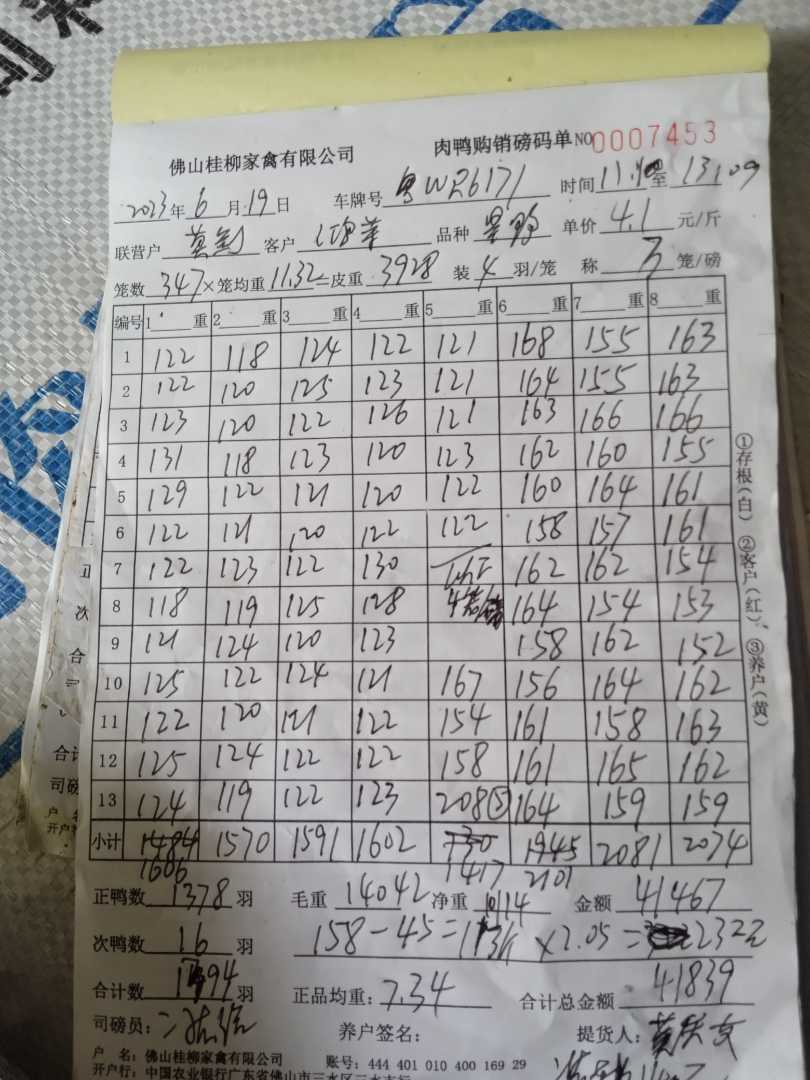 佛山桂柳家禽有限公司 肉鸭购销磅码单 NO 0007453
2023年6月19日 车牌号 粤WR6171 时间 至 13:09
联营户 客户 品种 单价 4.1 元/斤
笼数 347 × 笼均重 11.32 = 皮重 3928 装 4 羽/笼 称 3 笼/磅
编号 1 重 2 重 3 重 4 重 5 重 6 重 7 重 8 重
1 122 118 124 122 121 168 155 163
2 122 120 125 123 121 164 155 163
3 123 120 122 126 121 163 166 166
4 131 118 123 120 123 162 160 155
5 129 122 121 120 122 160 164 161
6 122 121 120 122 122 158 157 161
7 122 123 122 130 162 162 154
8 118 119 125 128 164 154 153
9 121 124 120 123 158 162 152
10 125 122 124 121 167 156 164 162
11 122 120 121 122 154 161 158 163
12 125 124 122 122 158 161 165 162
13 124 119 122 123 208⑤ 164 159 159
小计 1484 1570 1591 1602 730 1945 2081 2074
1606 1417 2101
正鸭数 1378 羽 毛重 14042 净重 10114 金额 41467
次鸭数 16 羽 158-45=113斤×2.05=232元
合计数 1394 羽 正品均重: 7.34 合计总金额 41839
司磅员: 养户签名: 提货人:
户 名: 佛山桂柳家禽有限公司 账号: 444 401 010 400 169 29
开户行: 中国农业银行广东省佛山市三水区三水支行
①存根(白) ②客户(红)、③养户(黄)